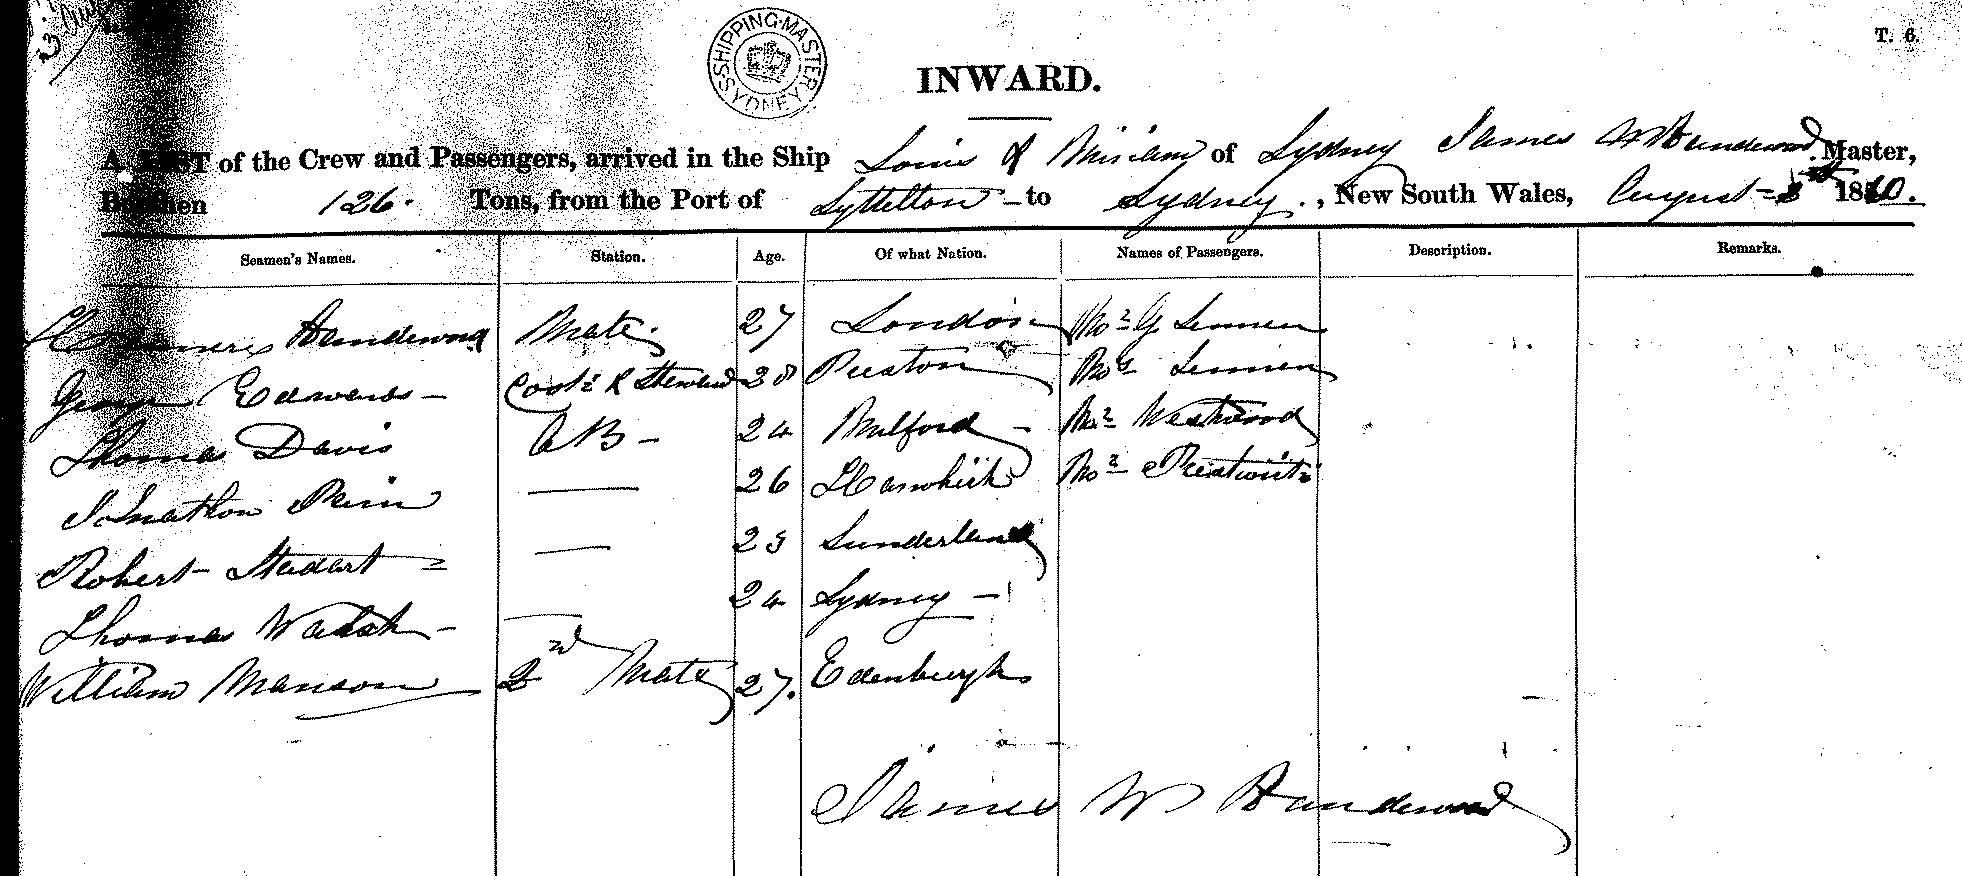 SHIPPING MASTER SYDNEY
T. 6.
INWARD.
A LIST of the Crew and Passengers, arrived in the Ship Louis & Miriam of Sydney James W Handewood Master,
Burthen 126. Tons, from the Port of Lyttelton - to Sydney, New South Wales, August 1860.
Seamen's Names. Station. Age. Of what Nation. Names of Passengers. Description. Remarks.
Handewood Mate. 27 London Mr G Lennen
George Edwards - Cook & Steward 28 Preston Mrs Lennen
Thomas Davis AB - 24 Milford - Mr Westwood
Johnathon 26 Mr
Robert Stedart 23 Sunderland
Thomas Walsh - 24 Sydney -
William Manson 2nd Mate 27. Edenburgh
James W Handewood